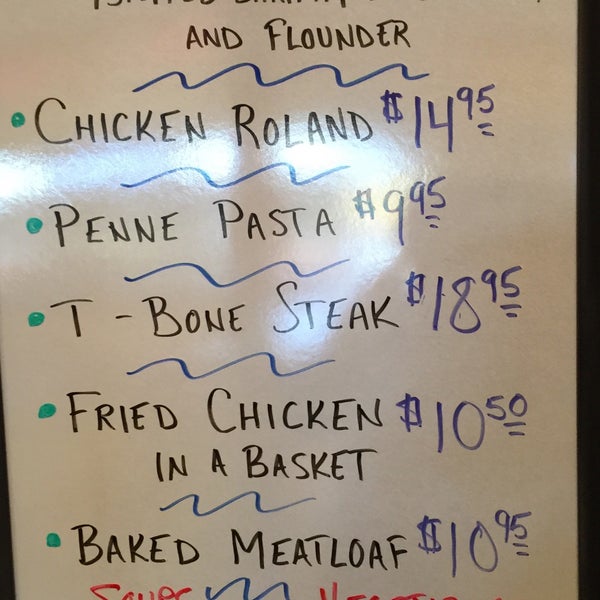 AND FLOUNDER
CHICKEN ROLAND $14.95
PENNE PASTA $9.95
T-BONE STEAK $18.95
FRIED CHICKEN $10.50
IN A BASKET
BAKED MEATLOAF $10.95